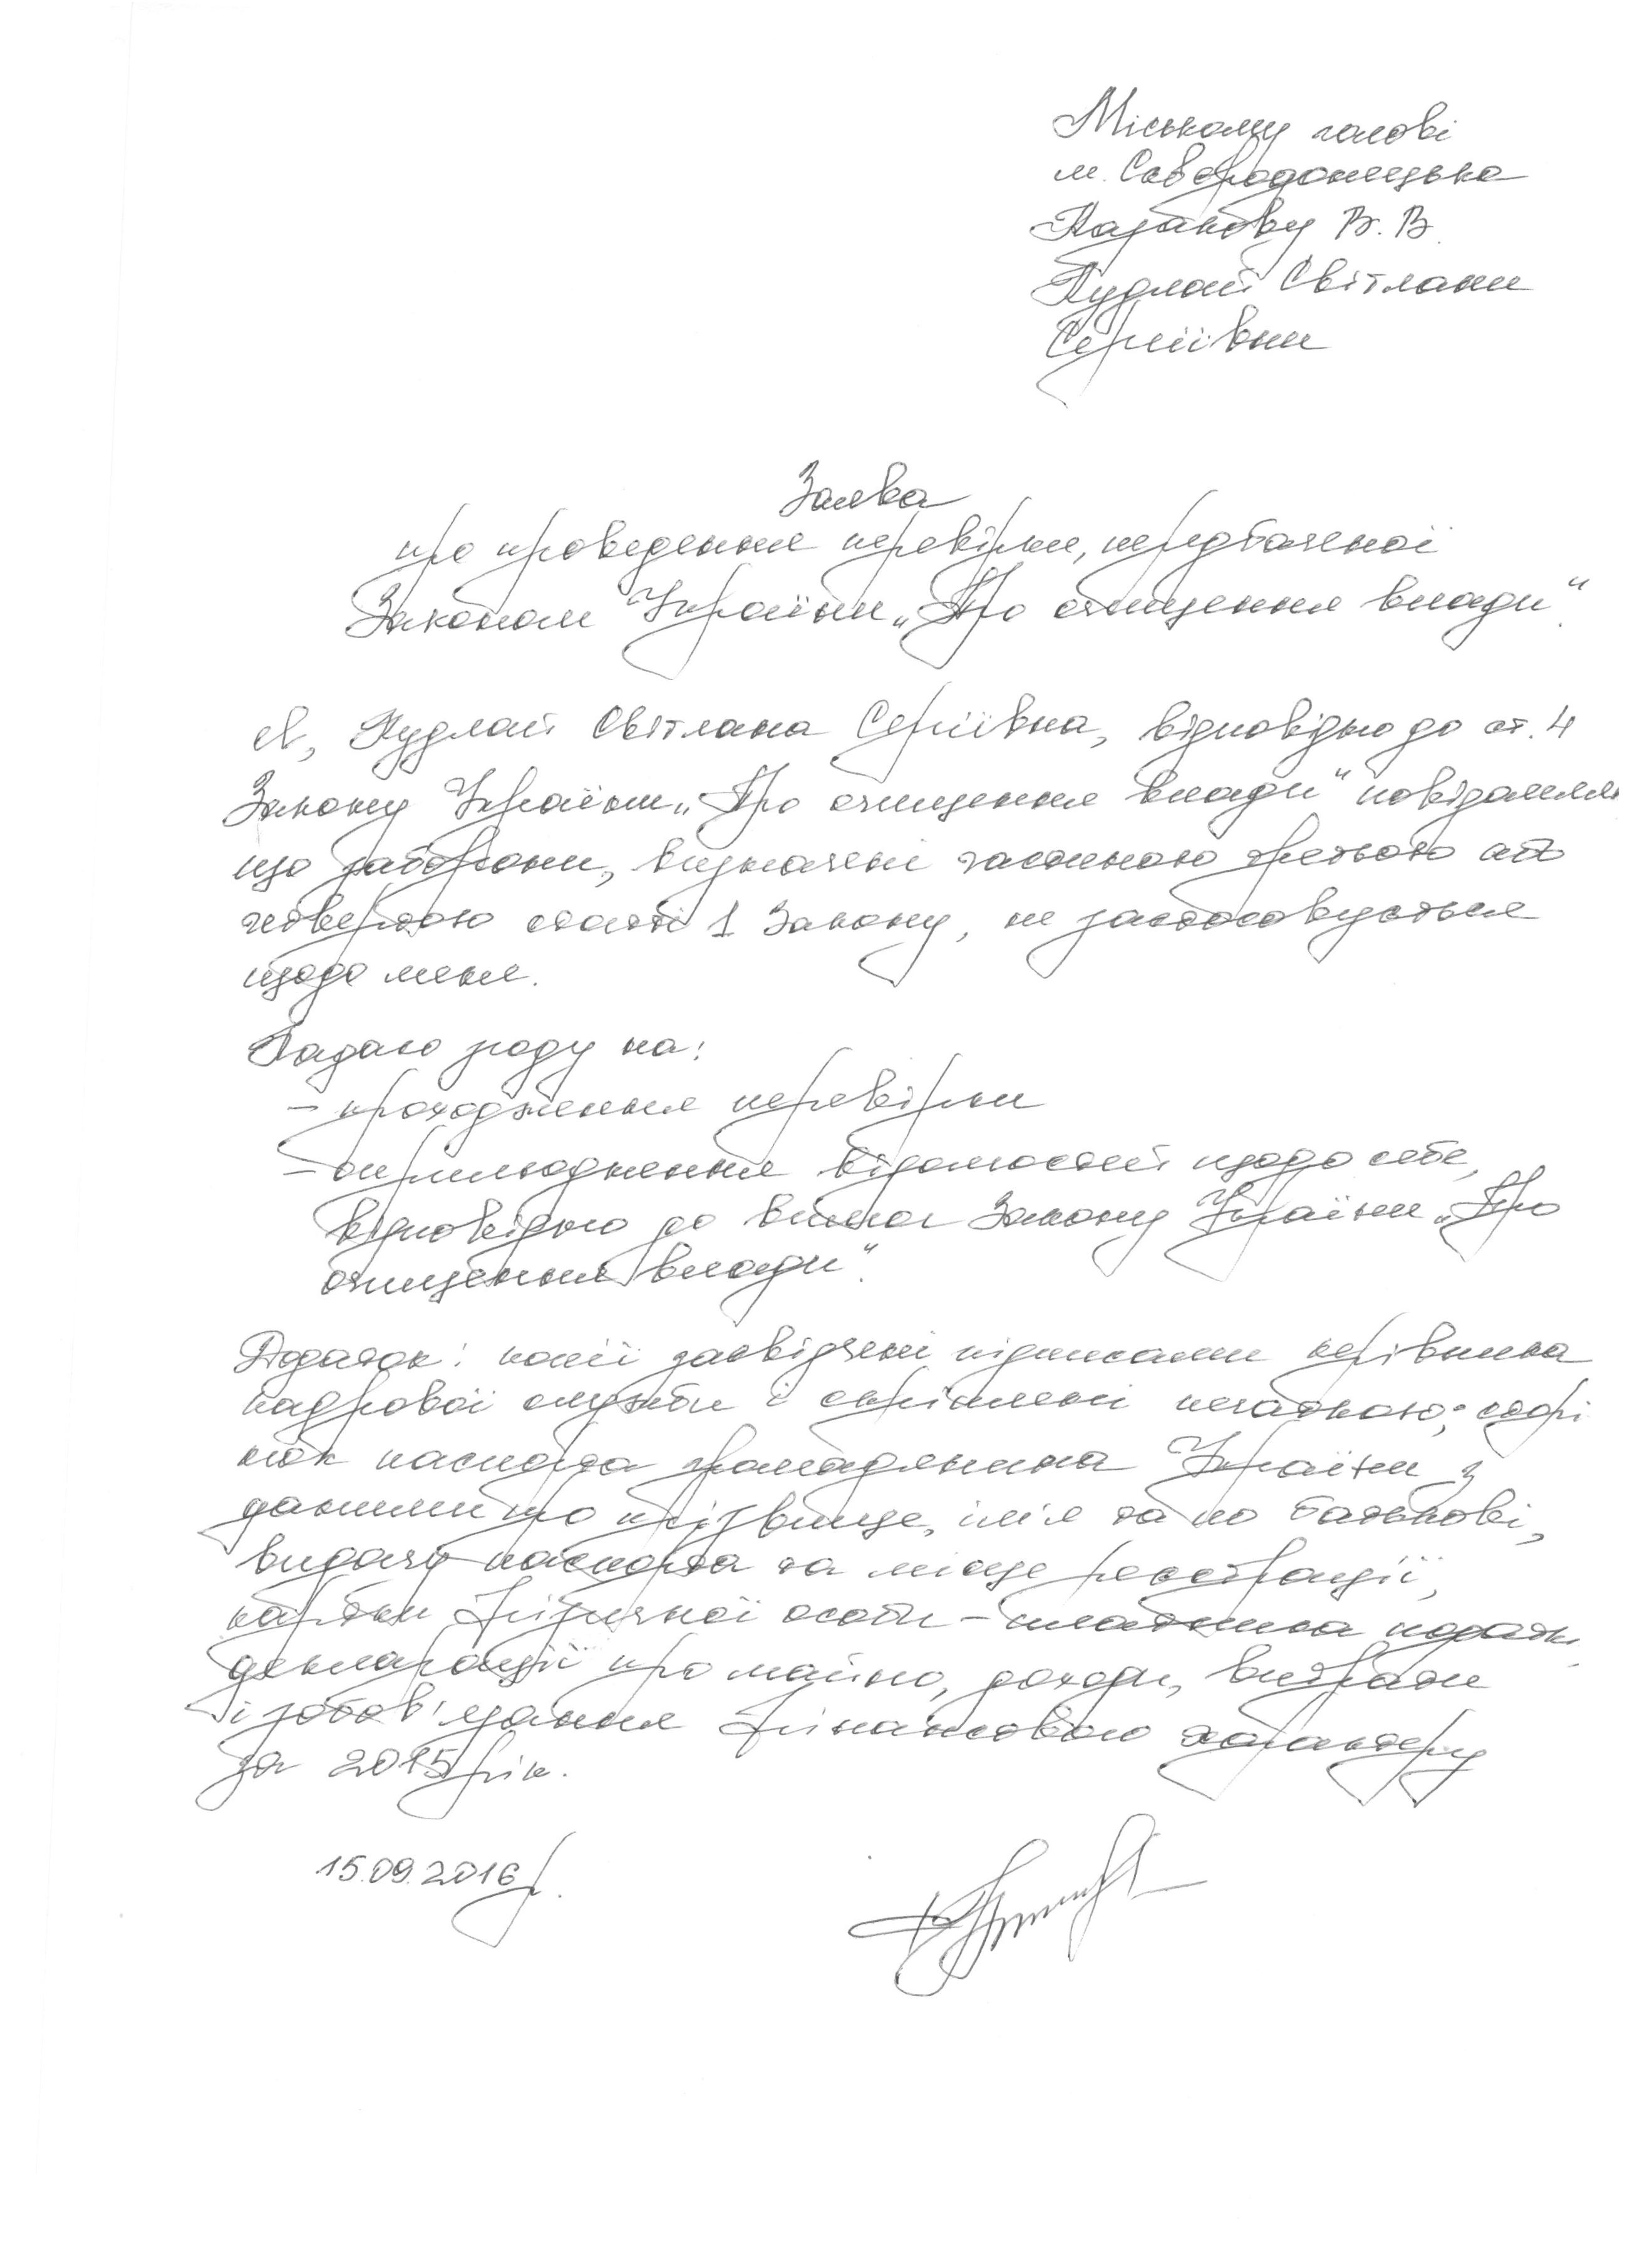 Міському голові
м. Сєвєродонецька
Казакову В. В.
Кудлай Світлани
Сергіївни
Заява
про проведення перевірки, передбаченої
Законом України „Про очищення влади“.
Я, Кудлай Світлана Сергіївна, відповідно до ст. 4
Закону України „Про очищення влади“ повідомляю
що заборони, визначені частиною третьою або
четвертою статті 1 Закону, не застосовуються
щодо мене.
Надаю згоду на:
- проходження перевірки
- оприлюднення відомостей щодо себе,
відповідно до вимог Закону України „Про
очищення влади“.
Додаток: копії засвідчені підписами керівника
кадрової служби і скріплені печаткою; сторі
нок паспорта громадянина України з
даними про прізвище, ім'я та по батькові,
видачу паспорта та місце реєстрації,
картки фізичної особи - платника податків
декларації про майно, доходи, витрати
і зобов'язання фінансового характеру
за 2015 рік.
15.09.2016р.